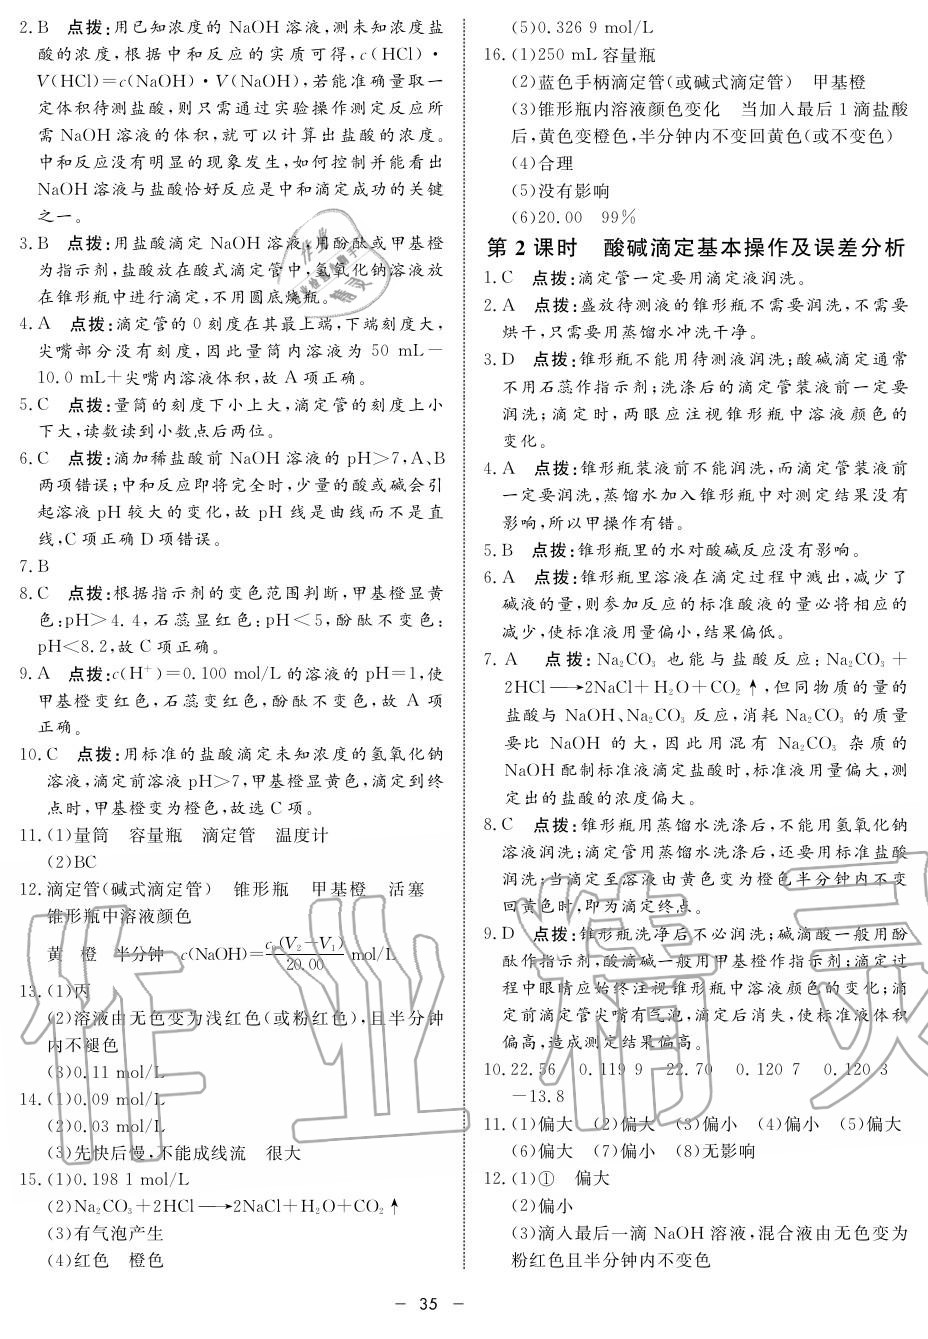 2. B 点拨:用已知浓度的 NaOH 溶液,测未知浓度盐
酸的浓度,根据中和反应的实质可得,c(HCl)·
V(HCl)=c(NaOH)·V(NaOH),若能准确量取一
定体积待测盐酸,则只需通过实验操作测定反应所
需 NaOH 溶液的体积,就可以计算出盐酸的浓度。
中和反应没有明显的现象发生,如何控制并能看出
NaOH 溶液与盐酸恰好反应是中和滴定成功的关键
之一。
3. B 点拨:用盐酸滴定 NaOH 溶液,用酚酞或甲基橙
为指示剂,盐酸放在酸式滴定管中,氢氧化钠溶液放
在锥形瓶中进行滴定,不用圆底烧瓶。
4. A 点拨:滴定管的 0 刻度在其最上端,下端刻度大,
尖嘴部分没有刻度,因此量筒内溶液为 50 mL-
10.0 mL+尖嘴内溶液体积,故 A 项正确。
5. C 点拨:量筒的刻度下小上大,滴定管的刻度上小
下大,读数读到小数点后两位。
6. C 点拨:滴加稀盐酸前 NaOH 溶液的 pH>7,A、B
两项错误;中和反应即将完全时,少量的酸或碱会引
起溶液 pH 较大的变化,故 pH 线是曲线而不是直
线,C 项正确 D 项错误。
7. B
8. C 点拨:根据指示剂的变色范围判断,甲基橙显黄
色:pH>4.4,石蕊显红色:pH<5,酚酞不变色:
pH<8.2,故 C 项正确。
9. A 点拨:c(H⁺)=0.100 mol/L 的溶液的 pH=1,使
甲基橙变红色,石蕊变红色,酚酞不变色,故 A 项
正确。
10. C 点拨:用标准的盐酸滴定未知浓度的氢氧化钠
溶液,滴定前溶液 pH>7,甲基橙显黄色,滴定到终
点时,甲基橙变为橙色,故选 C 项。
11. (1)量筒 容量瓶 滴定管 温度计
(2)BC
12. 滴定管(碱式滴定管) 锥形瓶 甲基橙 活塞
锥形瓶中溶液颜色
黄 橙 半分钟 c(NaOH)=c₀(V₂-V₁)/20.00 mol/L
13. (1)丙
(2)溶液由无色变为浅红色(或粉红色),且半分钟
内不褪色
(3)0.11 mol/L
14. (1)0.09 mol/L
(2)0.03 mol/L
(3)先快后慢,不能成线流 很大
15. (1)0.198 1 mol/L
(2)Na₂CO₃+2HCl⟶2NaCl+H₂O+CO₂↑
(3)有气泡产生
(4)红色 橙色
(5)0.326 9 mol/L
16. (1)250 mL 容量瓶
(2)蓝色手柄滴定管(或碱式滴定管) 甲基橙
(3)锥形瓶内溶液颜色变化 当加入最后 1 滴盐酸
后,黄色变橙色,半分钟内不变回黄色(或不变色)
(4)合理
(5)没有影响
(6)20.00 99%
第 2 课时 酸碱滴定基本操作及误差分析
1. C 点拨:滴定管一定要用滴定液润洗。
2. A 点拨:盛放待测液的锥形瓶不需要润洗,不需要
烘干,只需要用蒸馏水冲洗干净。
3. D 点拨:锥形瓶不能用待测液润洗;酸碱滴定通常
不用石蕊作指示剂;洗涤后的滴定管装液前一定要
润洗;滴定时,两眼应注视锥形瓶中溶液颜色的
变化。
4. A 点拨:锥形瓶装液前不能润洗,而滴定管装液前
一定要润洗,蒸馏水加入锥形瓶中对测定结果没有
影响,所以甲操作有错。
5. B 点拨:锥形瓶里的水对酸碱反应没有影响。
6. A 点拨:锥形瓶里溶液在滴定过程中溅出,减少了
碱液的量,则参加反应的标准酸液的量必将相应的
减少,使标准液用量偏小,结果偏低。
7. A 点拨:Na₂CO₃ 也能与盐酸反应:Na₂CO₃+
2HCl⟶2NaCl+H₂O+CO₂↑,但同物质的量的
盐酸与 NaOH、Na₂CO₃ 反应,消耗 Na₂CO₃ 的质量
要比 NaOH 的大,因此用混有 Na₂CO₃ 杂质的
NaOH 配制标准液滴定盐酸时,标准液用量偏大,测
定出的盐酸的浓度偏大。
8. C 点拨:锥形瓶用蒸馏水洗涤后,不能用氢氧化钠
溶液润洗;滴定管用蒸馏水洗涤后,还要用标准盐酸
润洗;当滴定至溶液由黄色变为橙色半分钟内不变
回黄色时,即为滴定终点。
9. D 点拨:锥形瓶洗净后不必润洗;碱滴酸一般用酚
酞作指示剂,酸滴碱一般用甲基橙作指示剂;滴定过
程中眼睛应始终注视锥形瓶中溶液颜色的变化;滴
定前滴定管尖嘴有气泡,滴定后消失,使标准液体积
偏高,造成测定结果偏高。
10. 22.56 0.119 9 22.70 0.120 7 0.120 3
-13.8
11. (1)偏大 (2)偏大 (3)偏小 (4)偏小 (5)偏大
(6)偏大 (7)偏小 (8)无影响
12. (1)① 偏大
(2)偏小
(3)滴入最后一滴 NaOH 溶液,混合液由无色变为
粉红色且半分钟内不变色
- 35 -
作业精灵